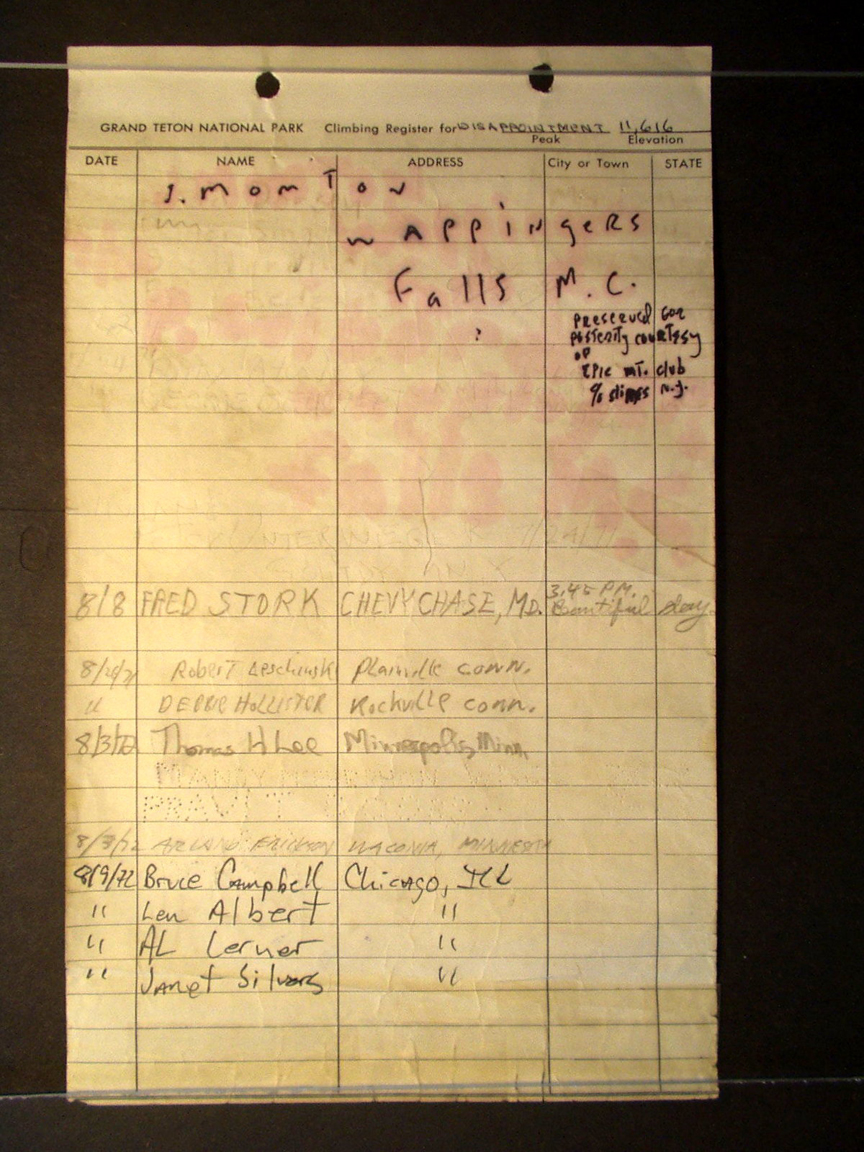 GRAND TETON NATIONAL PARK Climbing Register for DISAPPOINTMENT 11,616
Peak Elevation
DATE NAME ADDRESS City or Town STATE
J. MOMTON
WAPPINGERS
Falls M.C.
?
PRESERVED FOR
POSTERITY COURTESY
OF
EPIC MT. club
N.J.
7/29/71
8/8 FRED STORK CHEVY CHASE, MD. 3:45 P.M.
Beautiful day
Robert Plainville conn.
" DEBBIE HOLLISTER Rockville conn.
8/3/72 Thomas H Lee Minneapolis, Minn
8/3/72 ERICKSON WACONIA, MINNESOTA
8/9/72 Bruce Campbell Chicago, ILL
" Len Albert "
" AL Lerner "
" Janet Silvers "